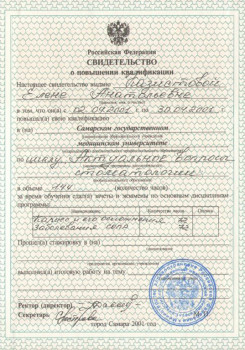 Российская Федерация
СВИДЕТЕЛЬСТВО
о повышении квалификации
Настоящее свидетельство выдано
Елене Анатольевне
в том, что он(а) с 02.04.2001 по 30.04.2001 г.
повышал(а) свою квалификацию
в (на) Самарском государственном
медицинском университете
по циклу "Актуальные вопросы
стоматологии
в объеме 144 (количество часов)
За время обучения сдал(а) зачеты и экзамены по основным дисциплинам
программы:
Наименование Количество часов Оценка
Кариес и его осложнения 72
Заболевания СОПР 72
Прошел(а) стажировку в (на)
выполнил(а) итоговую работу на тему
Ректор (директор)
Секретарь
город Самара 2001 год